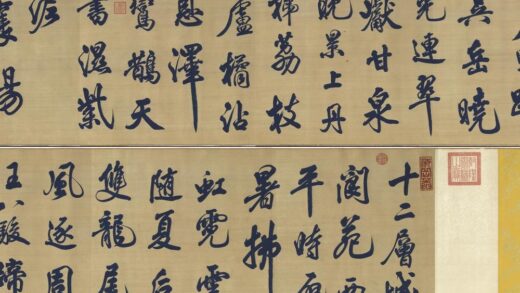 吳岳曉
光連翠
巘甘泉
晚景上丹
梯荔枝
盧橘沾
恩澤
鸞鵲天
書濕紫
泥
十二層城
閬苑西
平時避
暑拂
虹霓雲
隨夏后
雙龍尾
風逐周
王八駿蹄